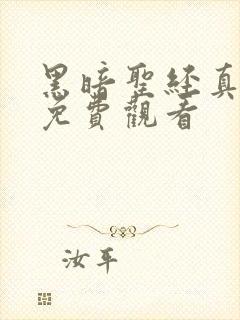 黑暗聖經真
免費觀看
汝平